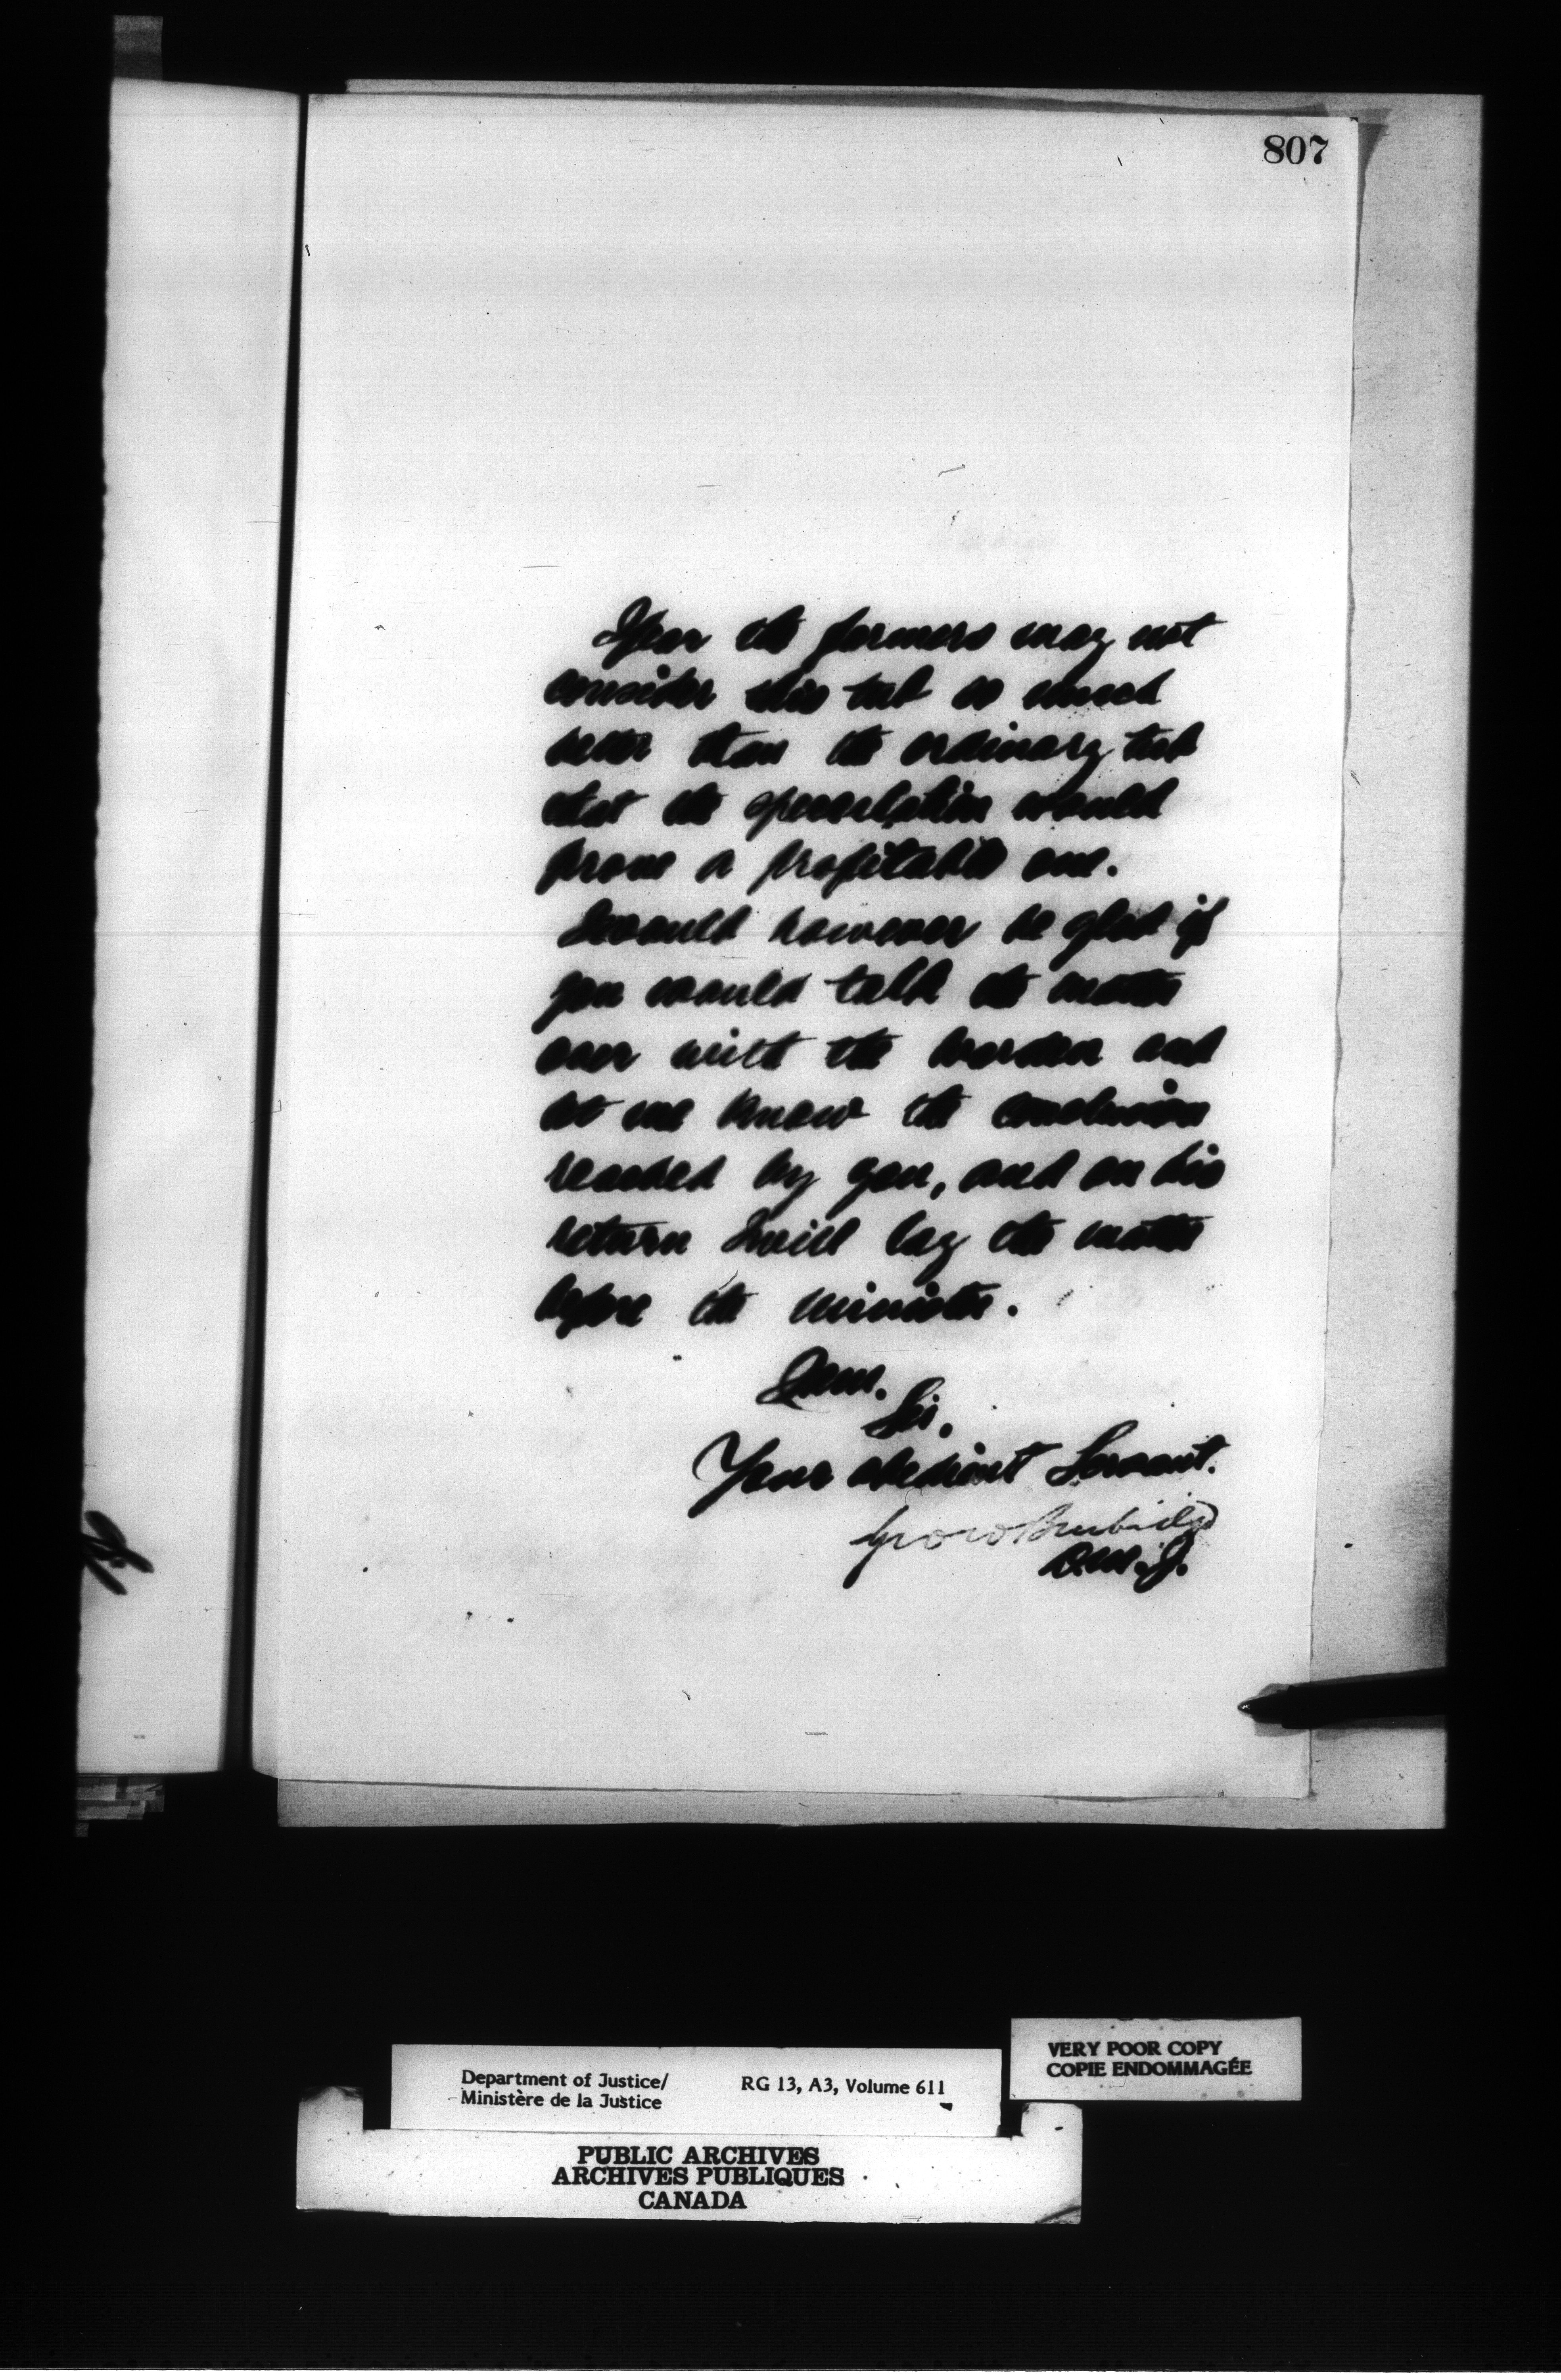 807
I fear the farmers may not
consider this tub so much
better than the ordinary tub
that the speculation would
prove a profitable one.
I would however be glad if
you would talk the matter
over with the Warden and
let me know the conclusion
reached by you, and on his
return I will lay the matter
before the Minister.
I am.
Sir,
Your obedient Servant.
Geo W Burbidge
D.M.J.
Department of Justice/
Ministère de la Justice
RG 13, A3, Volume 611
VERY POOR COPY
COPIE ENDOMMAGÉE
PUBLIC ARCHIVES
ARCHIVES PUBLIQUES
CANADA